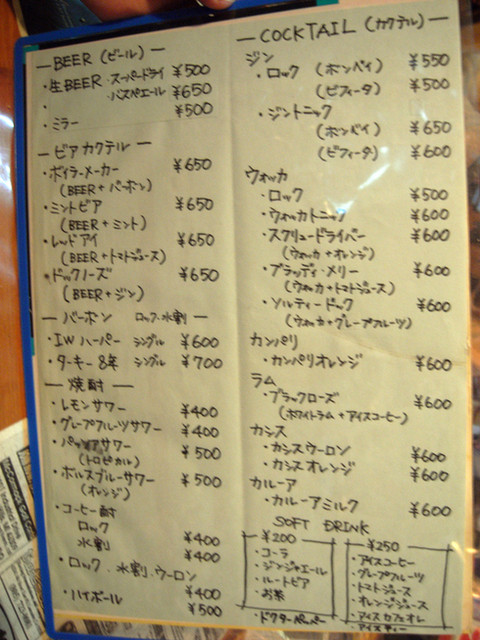 — BEER (ビール) —
・生BEER・スーパードライ ¥500
・バスペエール ¥650
・ ¥500
・ミラー
— ビアカクテル —
・ボイラーメーカー ¥650
(BEER + バーボン)
・ミントビア ¥650
(BEER + ミント)
・レッドアイ ¥650
(BEER + トマトジュース)
・ドッグノーズ ¥650
(BEER + ジン)
— バーボン ロック・水割 —
・IWハーパー シングル ¥600
・ターキー8年 シングル ¥700
— 焼酎 —
・レモンサワー ¥400
・グレープフルーツサワー ¥400
・パッソアサワー ¥500
(トロピカル)
・ボルスブルーサワー ¥500
(オレンジ)
・コーヒー酎
ロック ¥400
水割 ¥400
・ロック・水割・ウーロン ¥400
・ハイボール ¥500
— COCKTAIL (カクテル) —
ジン
・ロック (ボンベイ) ¥550
(ビフィータ) ¥500
・ジントニック
(ボンベイ) ¥650
(ビフィータ) ¥600
ウォッカ
・ロック ¥500
・ウォッカトニック ¥600
・スクリュードライバー ¥600
(ウォッカ + オレンジ)
・ブラッディ・メリー ¥600
(ウォッカ + トマトジュース)
・ソルティードッグ ¥600
(ウォッカ + グレープフルーツ)
カンパリ
・カンパリオレンジ ¥600
ラム
・ブラックローズ ¥600
(ホワイトラム + アイスコーヒー)
カシス
・カシスウーロン ¥600
・カシスオレンジ ¥600
カルーア
・カルーアミルク ¥600
SOFT DRINK
¥200
・コーラ
・ジンジャエール
・ルートビア
・お茶
・ドクターペッパー
¥250
・アイスコーヒー
・グレープフルーツ
・トマトジュース
・オレンジジュース
・アイスカフェオレ
・アイスティー